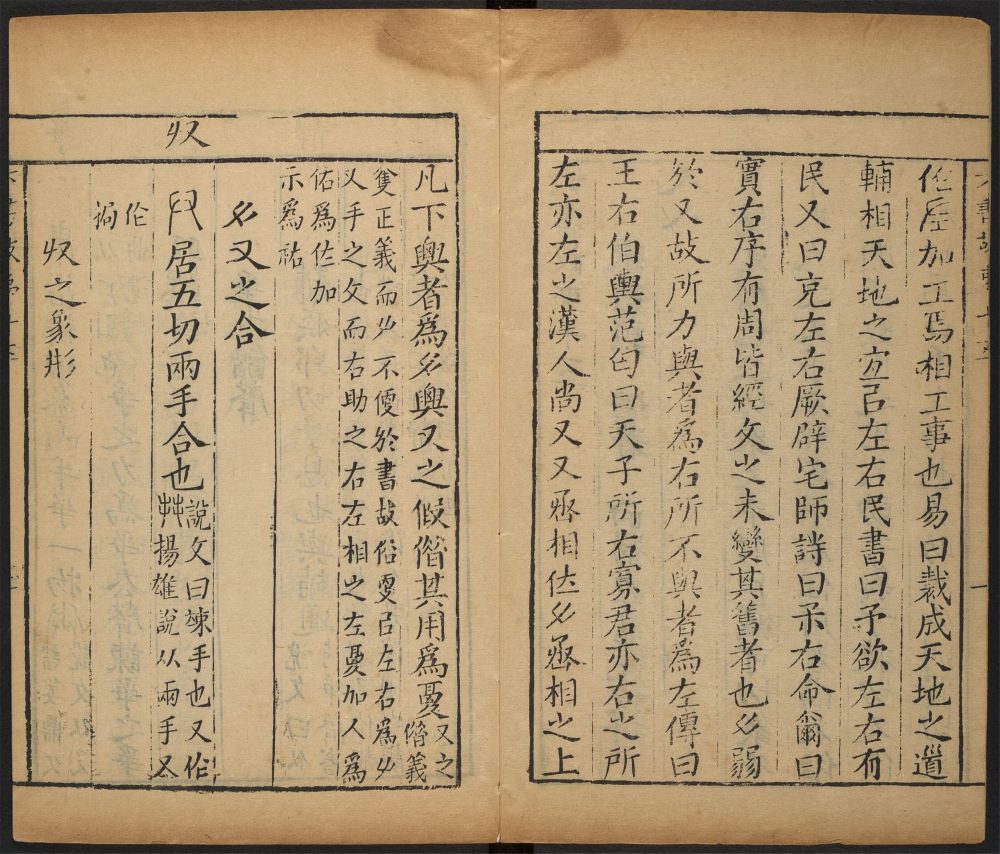 加工焉相工事也易曰裁成天地之道
輔相天地之宜㠯左右民書曰予欲左右有
民又曰克左右厥辟宅師詩曰左右命爾曰
實右序有周皆經文之未變其舊者也ナ弱
於又故所力與者為右所不與者為左傳曰
王右伯輿范匄曰天子所右寡君亦右之所
左亦左之漢人尚又又丞相佐ナ丞相之上
凡下輿者為ナ輿又之假借其用為憂又之
借義
隻正義而ナ不便於書故俗㪅㠯左右為ナ
又手之文而右助之右左相之左憂加人為
佑為佐加
示為祐
ナ又之合
収
居五切兩手合也
說文曰竦手也又作
𦱡揚雄說从兩手
収之象形